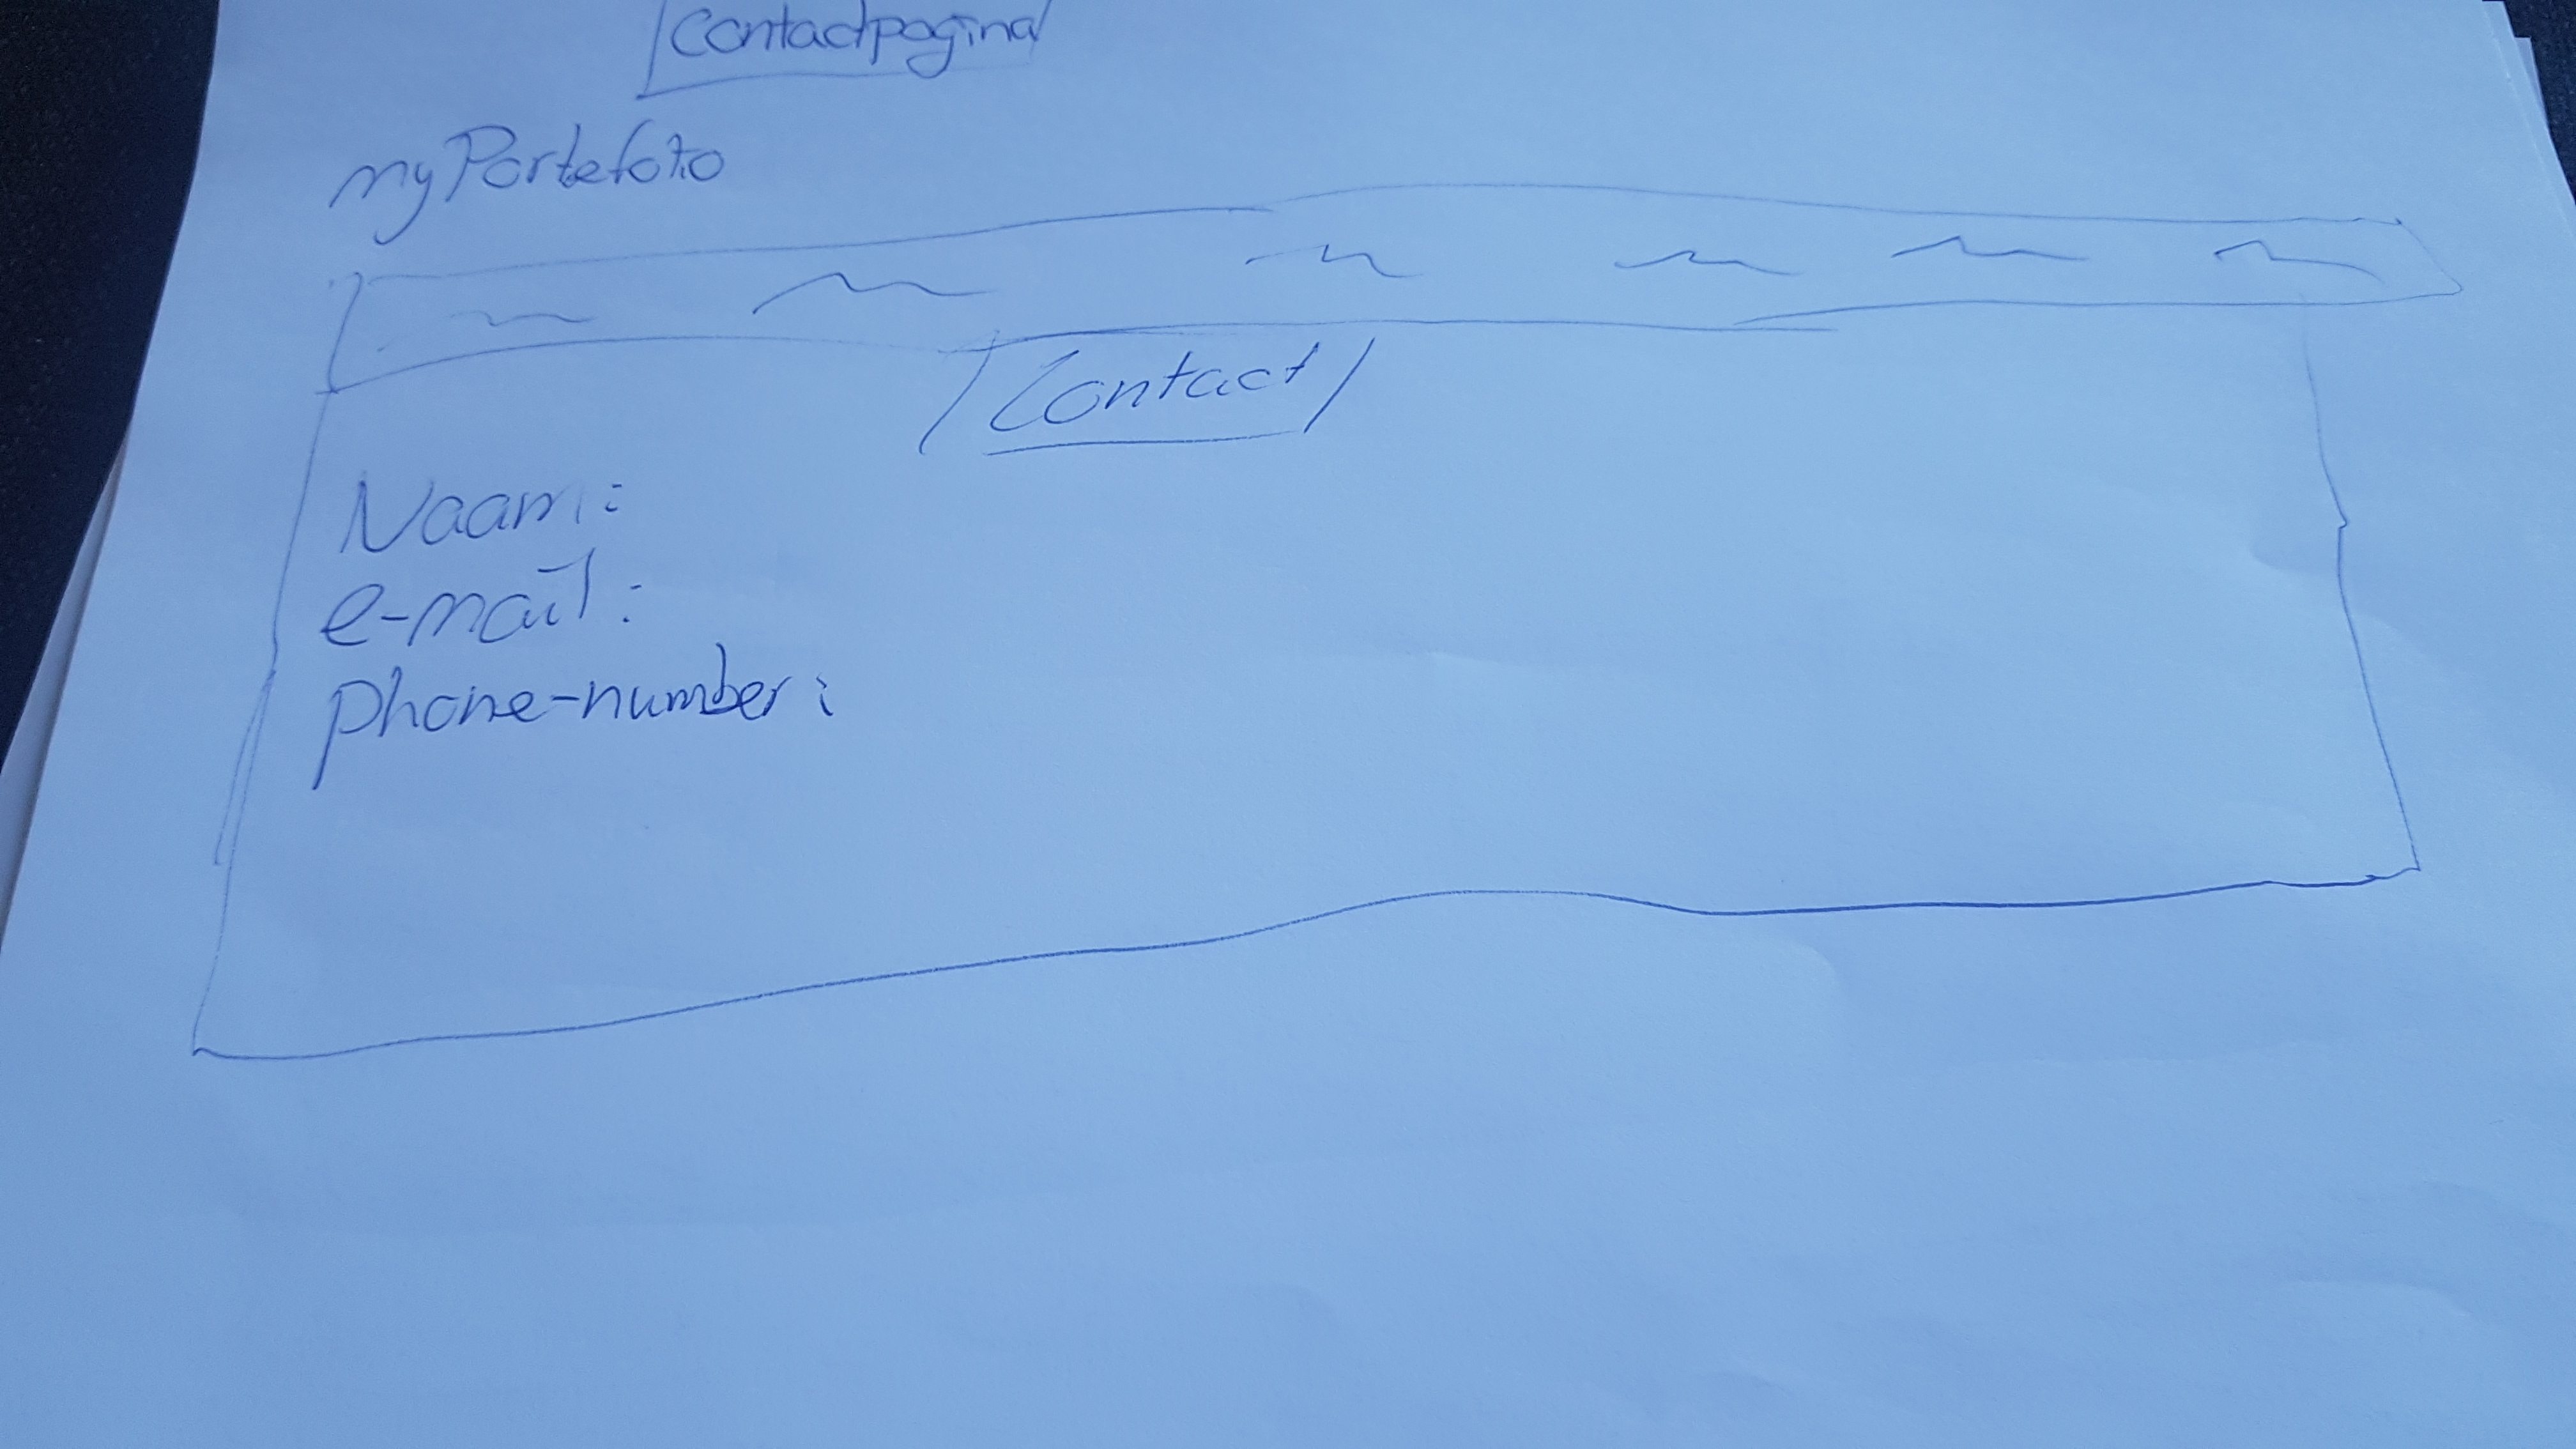 Contactpagina
myPortefolio
Contact
Naam:
e-mail:
phone-number: